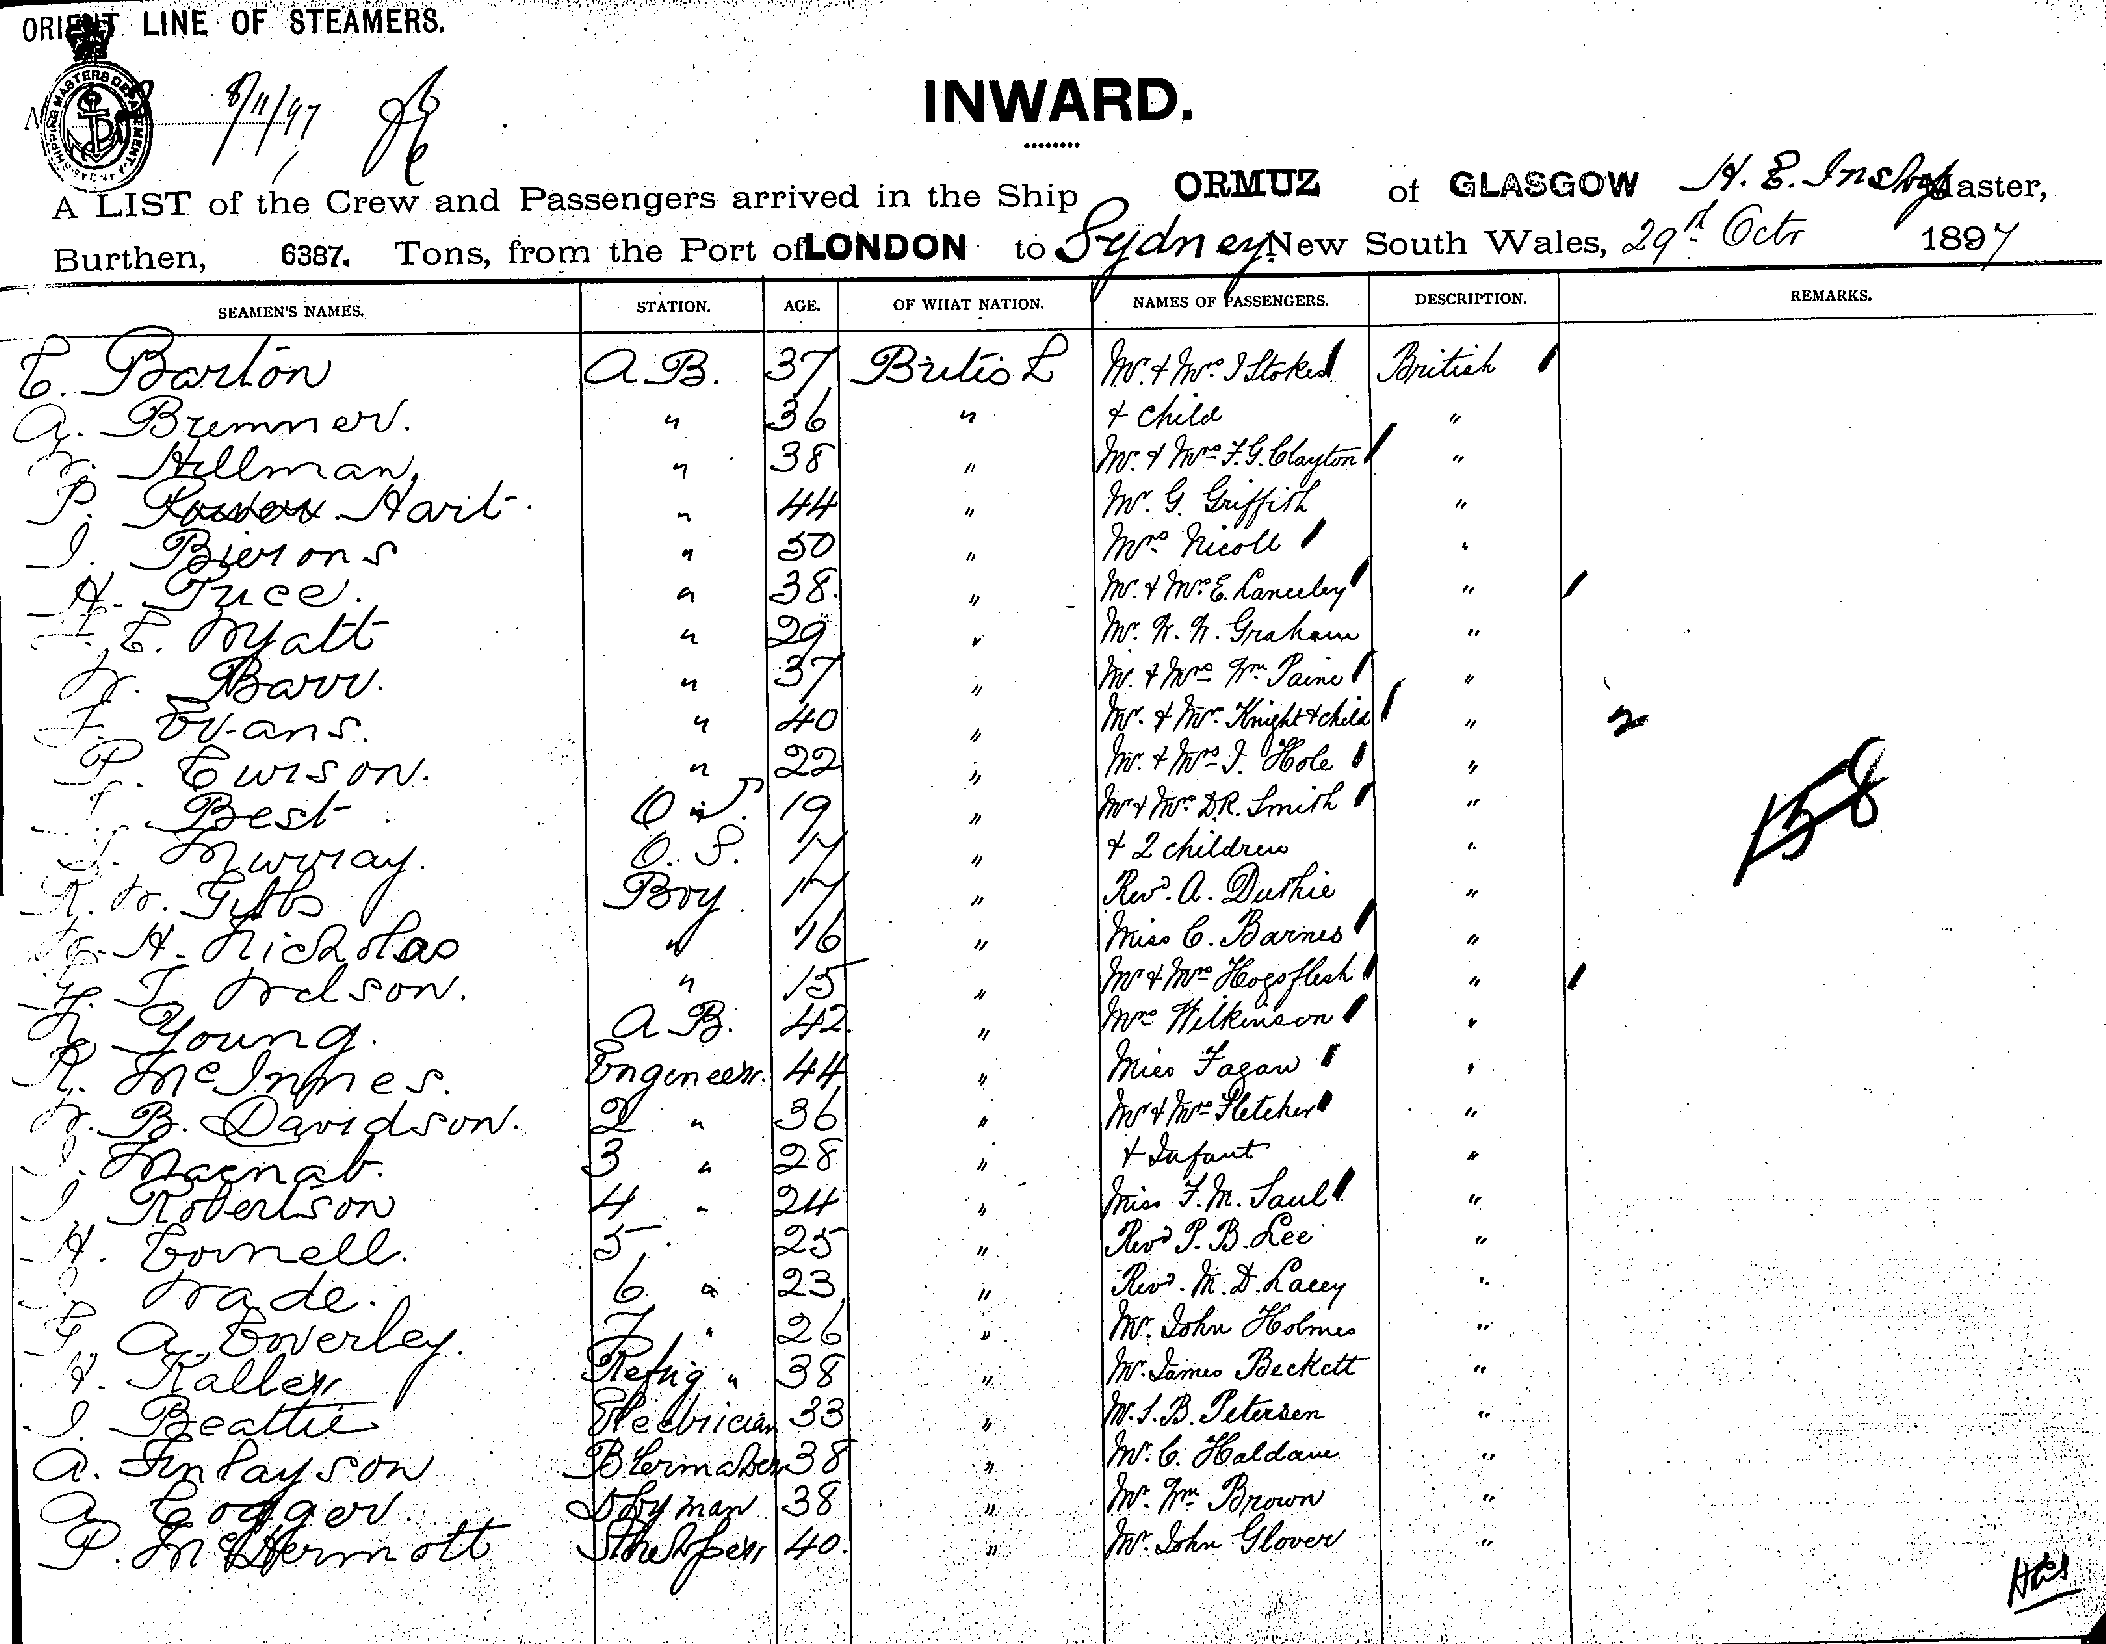 ORIENT LINE OF STEAMERS.
8/11/97
INWARD.
A LIST of the Crew and Passengers arrived in the Ship ORMUZ of GLASGOW H. E. Inskip Master,
Burthen, 6387. Tons, from the Port of LONDON to Sydney New South Wales, 29th Octr 1897
SEAMEN'S NAMES. STATION. AGE. OF WHAT NATION. NAMES OF PASSENGERS. DESCRIPTION. REMARKS.
Barton A.B. 37 British Mr. & Mrs. J Stokes British
A. Bremner. " 36 " & child "
W. Hillman, " 38 " Mr. & Mrs F. G. Clayton "
P. Hart " 44 " Mr. G. Griffith "
J. " 50 " Mrs Nicoll "
H. " 38. " Mr. & Mrs E. Lanceley "
E. Wyatt " 29 " Mr. W. W. Graham "
W. Barr. " 37 " Mr. & Mrs Wm Paine "
F. Evans. " 40 " Mr. & Mrs. Knight & child " 2
P. Ewison. " 22 " Mr. & Mrs J. Hole "
Best O.S. 19 " Mr & Mrs D. R. Smith " 158
J. Murray. O. S. 17 " & 2 children "
R. W. Gibbs Boy 17 " Revd. A. Duthie "
H. Nicholas " 16 " Miss C. Barnes "
T. " 15 " Mr & Mrs Hogsflesh "
Young. A B. 42 " Mrs Wilkinson "
R. McInnes. Engineer. 44 " Miss Fagan "
W. B. Davidson. 2 " 36 " Mr & Mrs Fletcher "
J. Macnab. 3 " 28 " & Infant "
J. Robertson 4 " 24 " Miss F. M. Saul "
H. Cornell. 5 " 25 " Revd P. B. Lee "
Wade. 6 " 23 " Revd. M. D. Lacey "
F. A. Coverley. 7 " 26 " Mr. John Holmes "
Refrig " 38 " Mr. James Beckett "
J. Beattie Electrician 33 " Mr. S. B. Petersen "
A. Finlayson Blermaker 38 " Mr. C. Haldane "
A. 38 " Mr. Wm Brown "
P. McDermott 40. " Mr. John Glover "